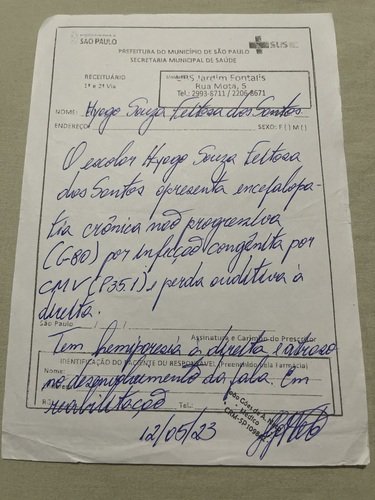 SÃO PAULO
SUS
PREFEITURA DO MUNICÍPIO DE SÃO PAULO
SECRETARIA MUNICIPAL DE SAÚDE
RECEITUÁRIO
1ª e 2ª Via
UBS Jardim Fontalis
Rua Mota, 5
Tel.: 2993-8711 / 2206-8671
NOME: Hyago Souza Feitosa dos Santos
ENDEREÇO: SEXO: F ( ) M ( )
O escolar Hyago Souza Feitosa
dos Santos apresenta encefalopa-
tia crônica não progressiva
(G80) por infecção congênita por
CMV (P35.1) e perda auditiva à
direita.
São Paulo / /
Assinatura e Carimbo do Prescritor
Tem hemiparesia à direita e atraso
IDENTIFICAÇÃO DO PACIENTE OU RESPONSÁVEL (Preenchido pela Farmácia)
Nome:
no desenvolvimento da fala. Em
reabilitação
Tel.:
Médico
12/05/23